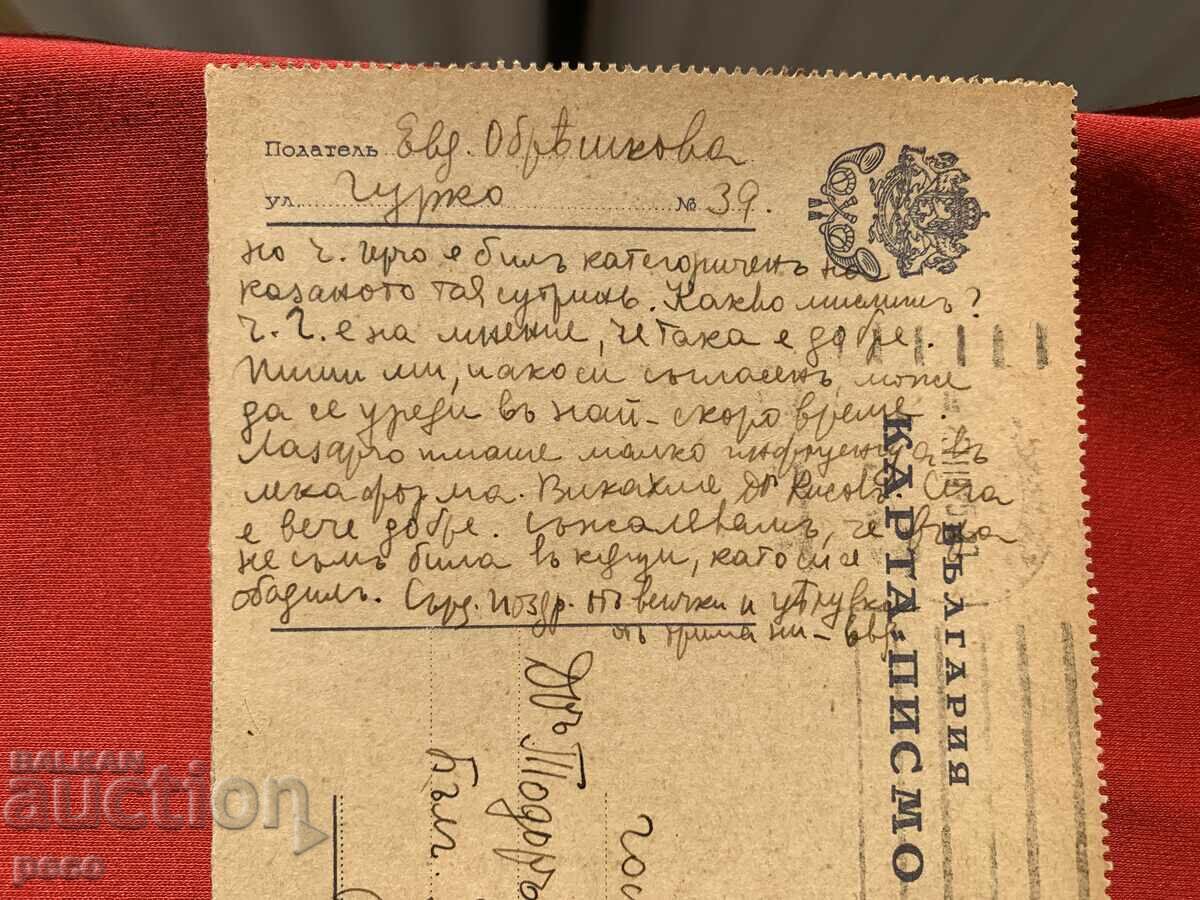 Податель Евд. Обрѣшкова
ул. Гурко № 39.
но ч. Герчо е билъ категориченъ на
казаното тая сутринь. Какво мислишъ?
Ч. Г. е на мнение, че така е добре.
Пиши ми, и ако си съгласенъ може
да се уреди въ най-скоро време.
Лазарчо имаше малко инфлуенца въ
лека форма. Викахме Д-ръ Кисовъ. Сега
е вече добре. Съжалявамъ, че вчера
не съмъ била въ кѫщи, като си се
обадилъ. Серд. поздр. отъ всички и цѣлувки
отъ трима ни - Евд.
БЪЛГАРИЯ
КАРТА-ПИСМО
Гос
Д-ръ Тодоръ
Бълг.
BALKAN
auction
peeo